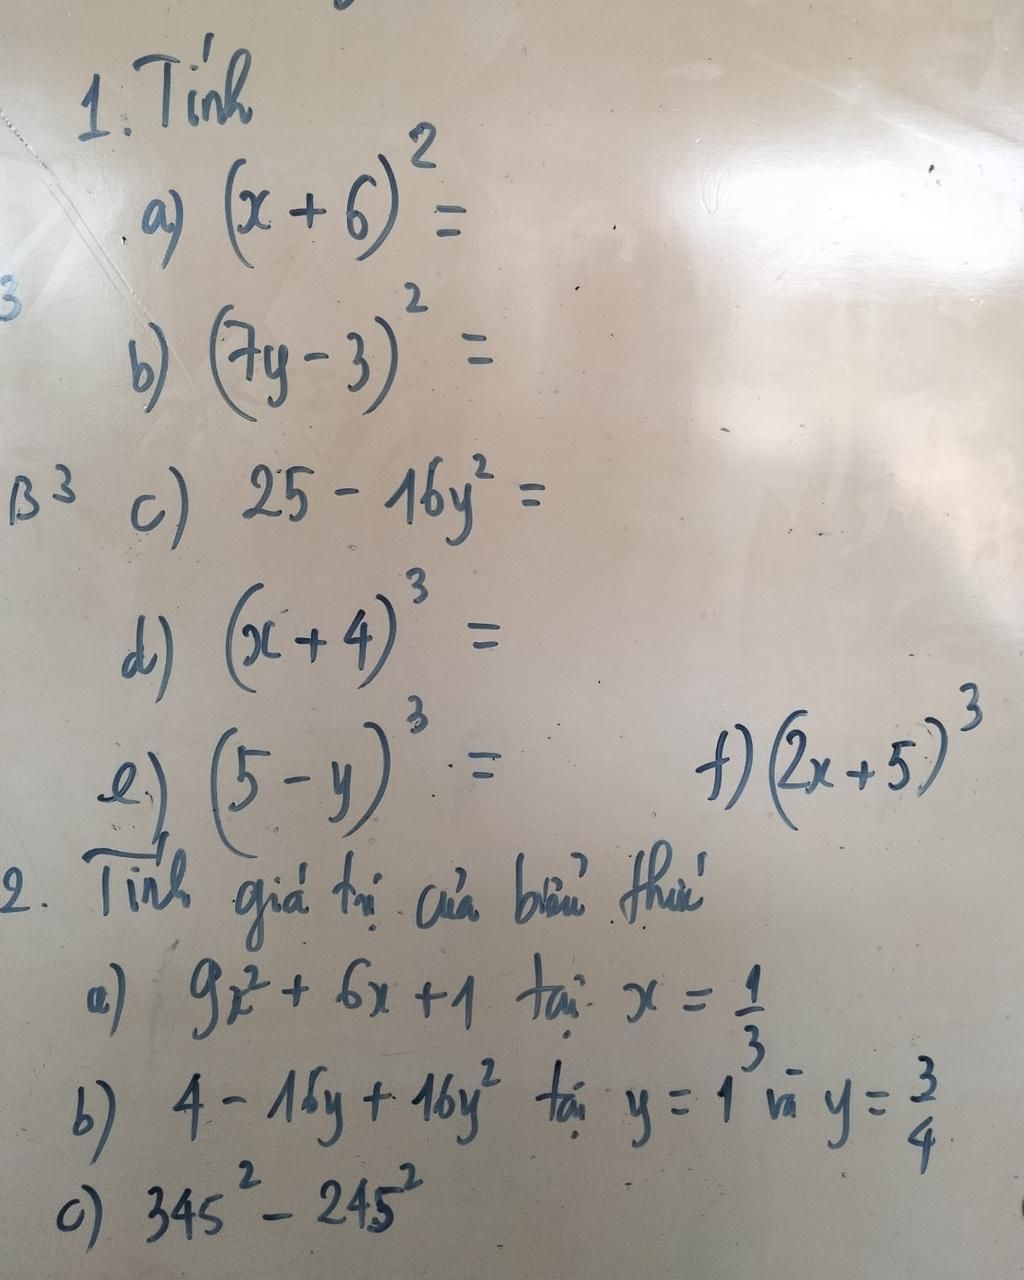 1. Tính
a) (x + 6)² =
3
b) (7y - 3)² =
B³ c) 25 - 16y² =
d) (x + 4)³ =
e) (5 - y)³ = f) (2x + 5)³
2. Tính giá trị của biểu thức
a) 9x² + 6x + 1 tại x = 1/3
b) 4 - 16y + 16y² tại y = 1 và y = 3/4
c) 345² - 245²